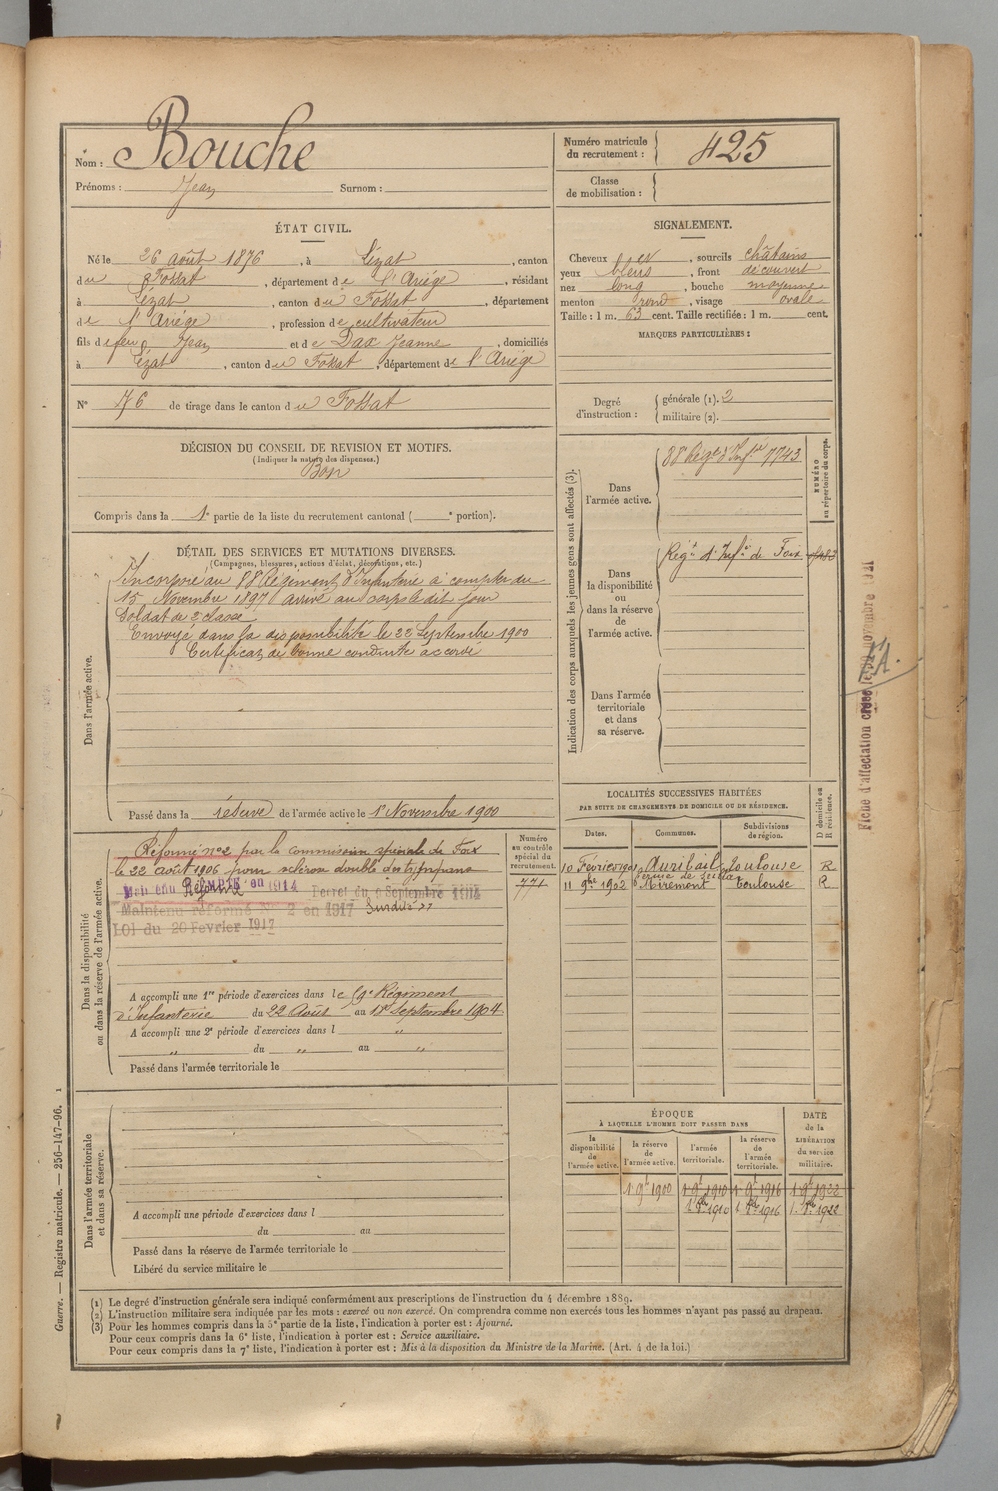 Nom : Bouche
Prénoms : Jean Surnom :
Numéro matricule du recrutement : 425
Classe de mobilisation :
ÉTAT CIVIL.
Né le 26 août 1876, à Lézat, canton
du Fossat, département de l'Ariège, résidant
à Lézat, canton du Fossat, département
de l'Ariège, profession de cultivateur
fils de feu Jean et de Dax Jeanne, domiciliés
à Lézat, canton du Fossat, département de l'Ariège
N° 76 de tirage dans le canton du Fossat
SIGNALEMENT.
Cheveux et, sourcils châtains
yeux bleus, front découvert
nez long, bouche moyenne
menton rond, visage ovale
Taille : 1 m. 63 cent. Taille rectifiée : 1 m. cent.
MARQUES PARTICULIÈRES :
Degré d'instruction : générale (1). 2
militaire (2).
DÉCISION DU CONSEIL DE REVISION ET MOTIFS.
(Indiquer la nature des dispenses.)
Bon
Compris dans la 1e partie de la liste du recrutement cantonal ( e portion).
DÉTAIL DES SERVICES ET MUTATIONS DIVERSES.
(Campagnes, blessures, actions d'éclat, décorations, etc.)
Dans l'armée active.
Incorporé au 88e Régiment d'Infanterie à compter du
15 Novembre 1897 arrivé au corps le dit jour
Soldat de 2e classe
Envoyé dans la disponibilité le 22 Septembre 1900
Certificat de bonne conduite accordé
Passé dans la réserve de l'armée active le 1er Novembre 1900
Indication des corps auxquels les jeunes gens sont affectés (3).
NUMÉRO au répertoire du corps.
Dans l'armée active.
88e Régt d'Infrie 7743
Dans la disponibilité ou dans la réserve de l'armée active.
Régt d'Infrie de Foix
Dans l'armée territoriale et dans sa réserve.
Fiche d'affectation novembre
Dans la disponibilité ou dans la réserve de l'armée active.
Numéro au contrôle spécial du recrutement.
771
Réformé n°2 par la commission spéciale de Foix
le 22 août 1906 pour sclérose double des tympans
Maintenu Réformé en 1914 Décret du 9 Septembre 1914
Maintenu réformé N° 2 en 1917
LOI du 20 Fevrier 1917
A accompli une 1re période d'exercices dans le 59e Régiment
d'Infanterie du 22 Août au 18 Septembre 1904
A accompli une 2e période d'exercices dans l "
" du " au "
Passé dans l'armée territoriale le
LOCALITÉS SUCCESSIVES HABITÉES
PAR SUITE DE CHANGEMENTS DE DOMICILE OU DE RÉSIDENCE.
Dates. Communes. Subdivisions de région. D domicile ou R résidence.
10 Février 1901 Auribail Toulouse R
11 9bre 1902 Miremont Toulouse R
Dans l'armée territoriale et dans sa réserve.
A accompli une période d'exercices dans l
du au
Passé dans la réserve de l'armée territoriale le
Libéré du service militaire le
ÉPOQUE
À LAQUELLE L'HOMME DOIT PASSER DANS
la disponibilité de l'armée active. la réserve de l'armée active. l'armée territoriale. la réserve de l'armée territoriale.
DATE de la LIBÉRATION du service militaire.
1 9bre 1900 1 9bre 1910 1 9bre 1916 1 9bre 1922
1. 8bre 1910 1. 8bre 1916 1. 8bre 1922
(1) Le degré d'instruction générale sera indiqué conformément aux prescriptions de l'instruction du 4 décembre 1889.
(2) L'instruction militaire sera indiquée par les mots : exercé ou non exercé. On comprendra comme non exercés tous les hommes n'ayant pas passé au drapeau.
(3) Pour les hommes compris dans la 5e partie de la liste, l'indication à porter est : Ajourné.
Pour ceux compris dans la 6e liste, l'indication à porter est : Service auxiliaire.
Pour ceux compris dans la 7e liste, l'indication à porter est : Mis à la disposition du Ministre de la Marine. (Art. 4 de la loi.)
Guerre. — Registre matricule. — 256-147-96. 1